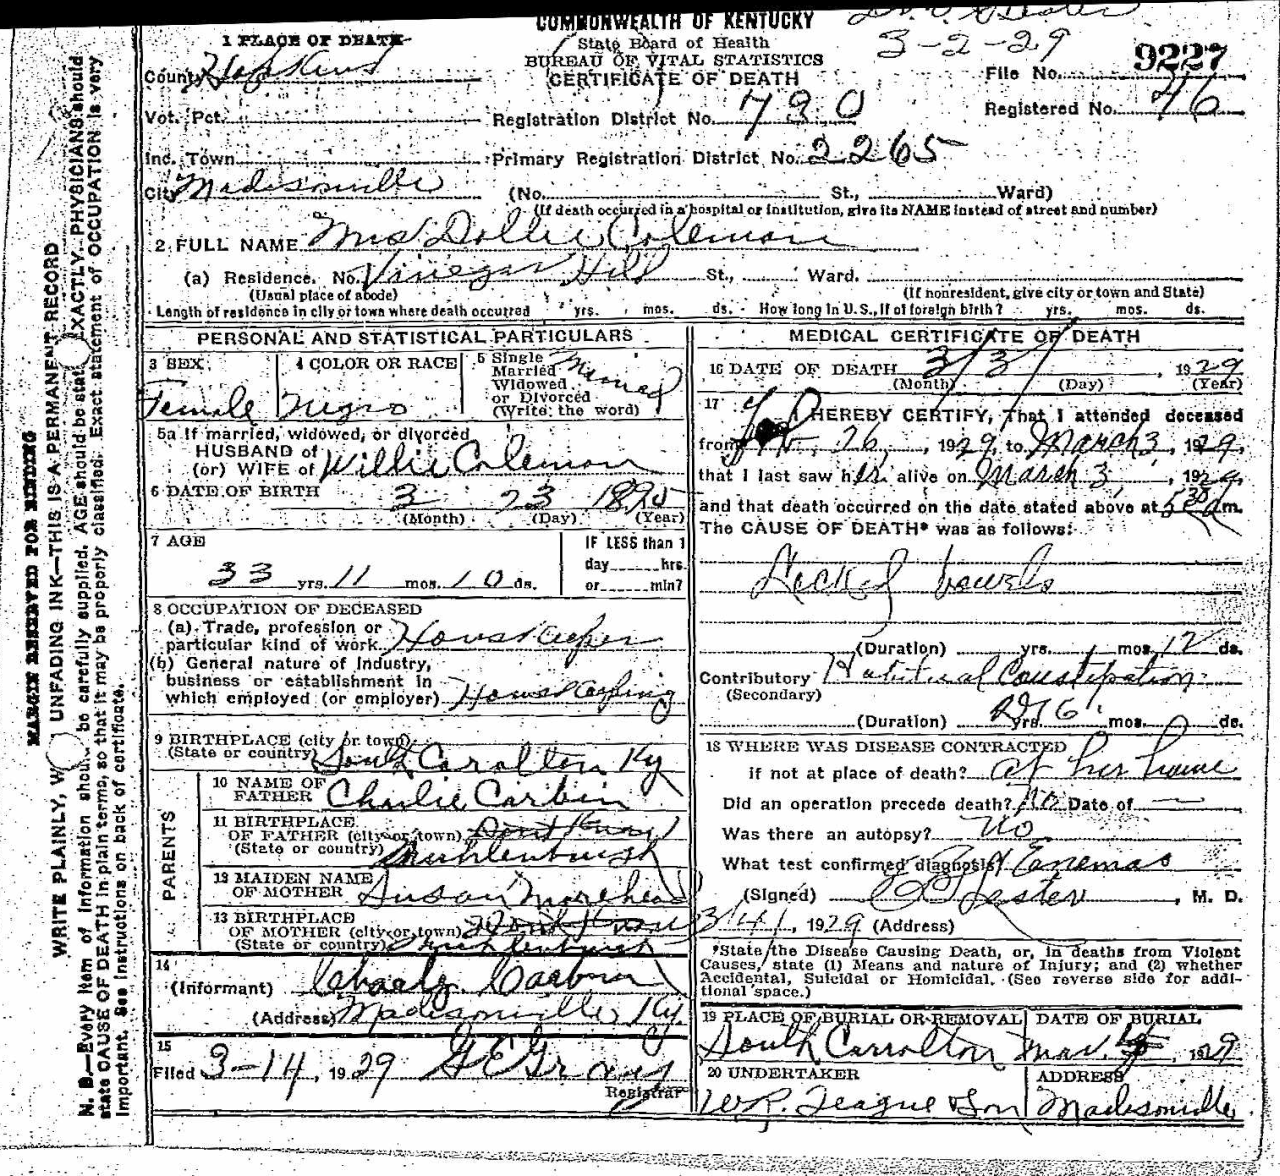 COMMONWEALTH OF KENTUCKY
State Board of Health
BUREAU OF VITAL STATISTICS
CERTIFICATE OF DEATH
3-2-29
File No. 9227
Registered No. 46
1 PLACE OF DEATH
County Hopkins
Vot. Pct.
Registration District No. 790
Inc. Town
Primary Registration District No. 2265
City Madisonville (No. St., Ward)
(If death occurred in a hospital or institution, give its NAME instead of street and number)
2 FULL NAME Mrs Dollie Coleman
(a) Residence. No. Vinegar Hill St., Ward.
(Usual place of abode) (If nonresident, give city or town and State)
Length of residence in city or town where death occurred yrs. mos. ds. How long in U.S., if of foreign birth? yrs. mos. ds.
PERSONAL AND STATISTICAL PARTICULARS
3 SEX Female
4 COLOR OR RACE Negro
5 Single
Married
Widowed
or Divorced
(Write the word) Married
5a If married, widowed, or divorced
HUSBAND of
(or) WIFE of Willie Coleman
6 DATE OF BIRTH 3 23 1895
(Month) (Day) (Year)
7 AGE
33 yrs. 11 mos. 10 ds.
IF LESS than 1
day hrs.
or min?
8 OCCUPATION OF DECEASED
(a) Trade, profession or
particular kind of work Houskeeper
(b) General nature of industry,
business or establishment in
which employed (or employer) Houskeeping
9 BIRTHPLACE (city or town)
(State or country) South Carolton Ky
PARENTS
10 NAME OF
FATHER Charlie Carbin
11 BIRTHPLACE
OF FATHER (city or town) Dont Know
(State or country) Muhlenburgh
12 MAIDEN NAME
OF MOTHER Susan Morehead
13 BIRTHPLACE
OF MOTHER (city or town) Dont Know
(State or country) Muhlenburgh
14
(Informant)
(Address) Madisonville Ky.
15
Filed 3-14, 1929
Registrar
MEDICAL CERTIFICATE OF DEATH
16 DATE OF DEATH 3/3/ 1929
(Month) (Day) (Year)
17 I HEREBY CERTIFY, That I attended deceased
from Feb 26, 1929, to March 3, 1929,
that I last saw her alive on March 3, 1929,
and that death occurred on the date stated above at 530 am.
The CAUSE OF DEATH* was as follows:
bowels
(Duration) yrs. mos. 12 ds.
Contributory Habitual Constipation
(Secondary)
(Duration) yrs. mos. ds.
18 WHERE WAS DISEASE CONTRACTED
if not at place of death? at her home
Did an operation precede death? No Date of —
Was there an autopsy? No
What test confirmed diagnosis? Enemas
(Signed) Lester, M. D.
1929 (Address)
*State the Disease Causing Death, or, in deaths from Violent
Causes, state (1) Means and nature of Injury; and (2) whether
Accidental, Suicidal or Homicidal. (See reverse side for addi-
tional space.)
19 PLACE OF BURIAL OR REMOVAL South Carrolton
DATE OF BURIAL Mar. 4 1929
20 UNDERTAKER W.R. Teague & Son
ADDRESS Madisonville
MARGIN RESERVED FOR BINDING
WRITE PLAINLY, W UNFADING INK—THIS IS A PERMANENT RECORD
N. B.—Every item of information shou be carefully supplied. AGE should be stat EXACTLY. PHYSICIANS should
state CAUSE OF DEATH in plain terms, so that it may be properly classified. Exact statement of OCCUPATION is very
important. See instructions on back of certificate.